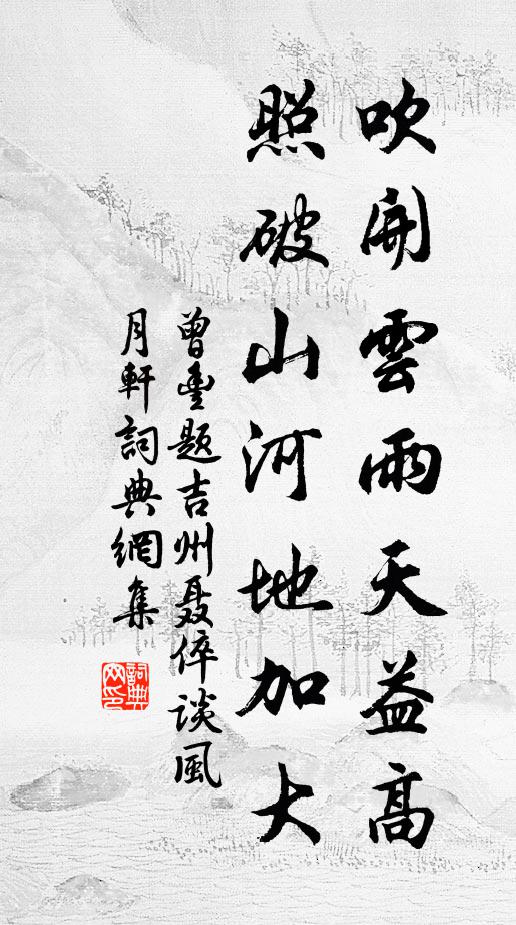 吹開雲雨天益高
照破山河地加大
曾豐題吉州聂倅谈風
月軒詞典網集
詞典网印